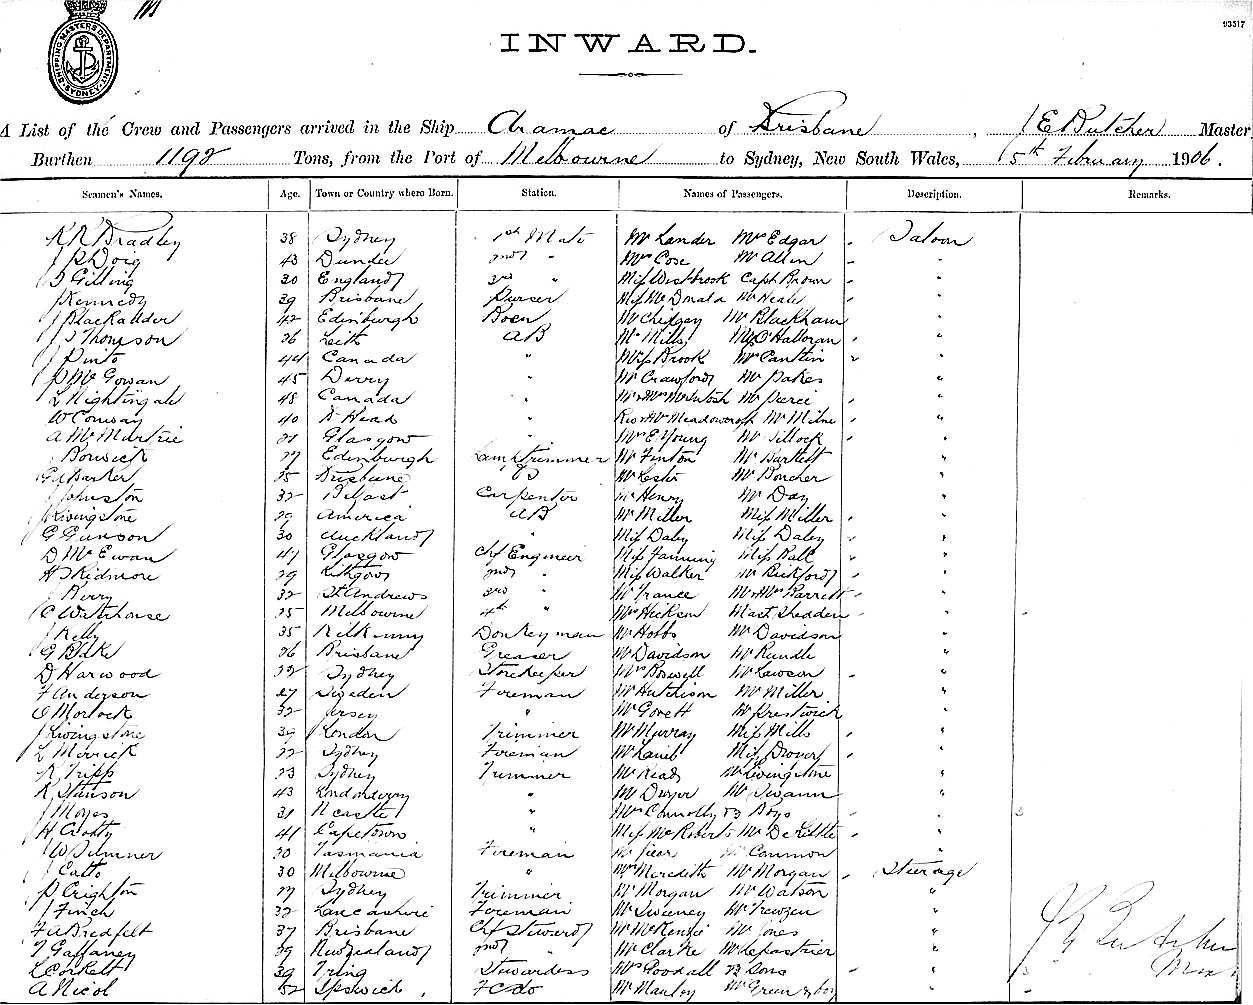 93517
SHIPPING MASTER'S DEPARTMENT SYDNEY
INWARD.
A List of the Crew and Passengers arrived in the Ship Aramac of Brisbane, J E Butcher Master
Burthen 1192 Tons, from the Port of Melbourne to Sydney, New South Wales, 5th February 1906.
Seamen's Names. Age. Town or Country where Born. Station. Names of Passengers. Description. Remarks.
R R Bradley 38 Sydney 1st Mate Mr Lander Mrs Edgar Saloon
J R Doig 43 Dundee 2nd " Mrs Cose Mr Allen "
Gilling 30 England 3rd " Miss Westbrook Capt Brown "
J Kennedy 39 Brisbane Purser Miss McDonald Mr Neale "
J Blackadder 42 Edinburgh Bosn Mr Chidgey Mr Blackham "
J Thompson 26 Leith AB Mr Mills O'Halloran "
J Pinto 44 Canada " Miss Brook Mr Cantin "
P McGowan 45 Derry " Mr Crawford Mr Pakes "
L Nightingale 48 Canada " Mr & Mrs McIntosh Mr Pierci "
W Conway 40 Head " Rev & Mrs Meadowcroft Mr Milne "
A McMartrie 21 Glasgow " Mrs E Young Mr Tillock "
Borwick 27 Edinburgh Lamptrimmer Mr Finton Mr Bartlett "
G Barker 25 Brisbane Mr Lester Mr Boucher "
J Johnston 32 Belfast Carpenter Mr Henry Mr Day "
J Livingstone 29 America AB Mr Miller Miss Miller "
G Gunson 30 Auckland " Miss Daly Miss Daley "
D McEwan 47 Glasgow Chf Engineer Miss Fanning Miss Bull "
H Skidmore 29 Lithgow 2nd " Miss Walker Mr Bickford "
J Berry 32 St Andrews 3rd " Mr France Mr & Mrs Barrett "
C Waterhouse 25 Melbourne 4th " Mrs Hickson Mast Shedden "
J Kelly 35 Kilkenny Donkeyman Mr Hobbs Mr Davidson "
G Blake 26 Brisbane Greaser Mr Davidson Mr Rundle "
D Harwood 22 Sydney Storekeeper Mrs Boswell Mr Lawson "
F Anderson 27 Sweden Foreman Mr Hutchison Mr Miller "
Morlock 32 Jersey " Mr Govett Mr Prestwick "
J Livingstone 39 London Trimmer Mr Murray Miss Mills "
L Merrick 22 Sydney Foreman Mr Laint Miss Drover "
R Tripp 23 Sydney Trimmer Mr Read Mr Livingstone "
R Stinson 43 Londonderry " Mr Dwyer Mr Swann "
J Moyes 31 Ncastle " Mrs Connolly & 3 Boys " 3
H Crotty 41 Capetown " Miss McRoberts Mr De Little "
J W Sumner 30 Tasmania Foreman Mr Common "
J Catto 30 Melbourne " Mrs Meredith Mr Morgan Steerage
P Crighton 27 Sydney Trimmer Mr Morgan Mr Watson "
J Finch 32 Lancashire Foreman Mr Sweeney Mr Trewzen "
F A Bredfelt 37 Brisbane Chf Steward Mr McKenzie Mr Jones "
T Gaffaney 29 New Zealand 2nd " Mr Clarke Mr Lepastrier "
L Corkett 39 Tring Stewardess Mrs Goodall & 3 Sons "
A Nicol 52 Ipswich F C do Mr Manley Mr Green & boy "
J E Butcher